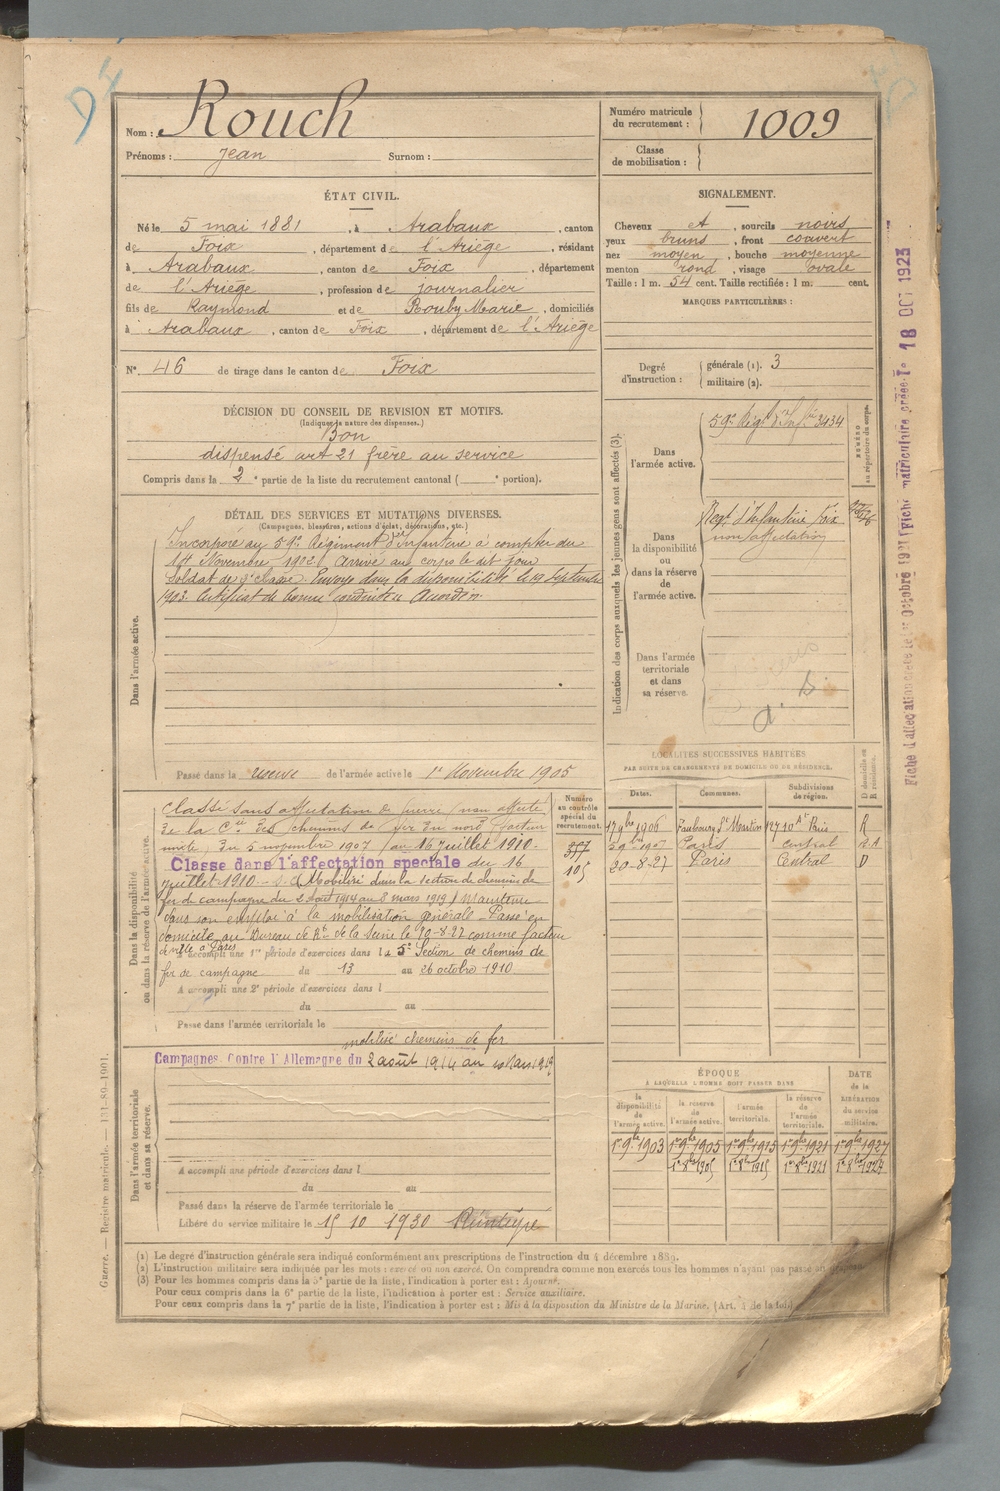 Nom : Rouch
Prénoms : Jean Surnom :
Numéro matricule du recrutement : 1009
Classe de mobilisation :
ÉTAT CIVIL.
Né le 5 mai 1881, à Arabaux, canton
de Foix, département de l'Ariège, résidant
à Arabaux, canton de Foix, département
de l'Ariège, profession de journalier
fils de Raymond et de Rouby Marie, domiciliés
à Arabaux, canton de Foix, département de l'Ariège
N° 46 de tirage dans le canton de Foix
SIGNALEMENT.
Cheveux et, sourcils noirs
yeux bruns, front couvert
nez moyen, bouche moyenne
menton rond, visage ovale
Taille : 1 m. 54 cent. Taille rectifiée : 1 m. cent.
MARQUES PARTICULIÈRES :
Degré d'instruction : générale (1). 3
militaire (2).
DÉCISION DU CONSEIL DE REVISION ET MOTIFS.
(Indiquer la nature des dispenses.)
Bon
dispensé art 21 frère au service
Compris dans la 2e partie de la liste du recrutement cantonal ( e portion).
DÉTAIL DES SERVICES ET MUTATIONS DIVERSES.
(Campagnes, blessures, actions d'éclat, décorations, etc.)
Dans l'armée active.
Incorporé au 59e Régiment d'Infanterie à compter du
Novembre 1902 Arrivé au corps le dit jour
Soldat de 2e classe. Envoyé dans la disponibilité le 19 Septembre
1903. Certificat de bonne conduite Accordé.
Passé dans la réserve de l'armée active le 1er Novembre 1905
Indication des corps auxquels les jeunes gens sont affectés (3).
NUMÉRO au répertoire du corps.
Dans l'armée active.
59e Régt d'Infie 3434
Dans la disponibilité ou dans la réserve de l'armée active.
Régt d'Infanterie Foix
non affectation
Dans l'armée territoriale et dans sa réserve.
Dans la disponibilité ou dans la réserve de l'armée active.
Classé sans affectation de guerre (non affecté
de la Cie des chemins de fer du nord (facteur
mixte) du 5 novembre 1907 (au 16 juillet 1910.
Classe dans l'affectation speciale du 16
juillet 1910. Mobilisé dans la section de chemins de
fer de campagne du 2 août 1914 au 8 mars 1919) Maintenu
dans son emploi à la mobilisation générale. Passé en
domicile au Bureau de Rt de la Seine le 20-8-27 comme facteur
de ville à Paris
A accompli une 1re période d'exercices dans la 5e Section de chemins de
fer de campagne du 13 au 26 octobre 1910
A accompli une 2e période d'exercices dans l
du au
Passé dans l'armée territoriale le
Numéro au contrôle spécial du recrutement.
357
105
LOCALITÉS SUCCESSIVES HABITÉES
PAR SUITE DE CHANGEMENTS DE DOMICILE OU DE RÉSIDENCE.
Dates. Communes. Subdivisions de région. D domicile ou R résidence.
17 9bre 1906 Faubourg St Martin 127 10e Art Paris R
1907 Paris Central R.A
20-8-27 Paris Central D
mobilisé chemins de fer
Campagnes. Contre l'Allemagne du 2 août 1914 au Mars 1919
Dans l'armée territoriale et dans sa réserve.
A accompli une période d'exercices dans l
du au
Passé dans la réserve de l'armée territoriale le
Libéré du service militaire le 15 10 1930
ÉPOQUE
A LAQUELLE L'HOMME DOIT PASSER DANS
la disponibilité de l'armée active. la réserve de l'armée active. l'armée territoriale. la réserve de l'armée territoriale. DATE de la LIBÉRATION du service militaire.
1er 9bre 1903 1er 9bre 1905 1er 9bre 1915 1er 9bre 1921 1er 9bre 1927
1er 8bre 1905 1er 8bre 1915 1er 8bre 1921 1er 8bre 1927
(1) Le degré d'instruction générale sera indiqué conformément aux prescriptions de l'instruction du 4 décembre 1889.
(2) L'instruction militaire sera indiquée par les mots : exercé ou non exercé. On comprendra comme non exercés tous les hommes n'ayant pas passé
(3) Pour les hommes compris dans la 5e partie de la liste, l'indication à porter est : Ajourné.
Pour ceux compris dans la 6e partie de la liste, l'indication à porter est : Service auxiliaire.
Pour ceux compris dans la 7e partie de la liste, l'indication à porter est : Mis à la disposition du Ministre de la Marine. (Art. 4 de la loi.)
Guerre. — Registre matricule. — 131-89-1901.
Fiche d'affectation créée le 1er Octobre 1921 (Fiche matriculaire créée le 18 OCT 1923